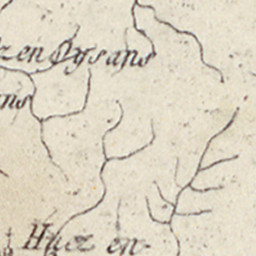 z en Oysans
ns
Huez en-